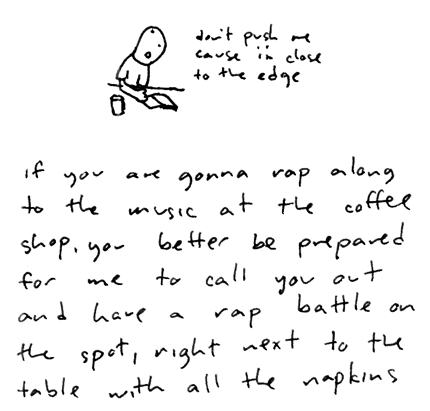 don't push me
cause i'm close
to the edge
if you are gonna rap along
to the music at the coffee
shop, you better be prepared
for me to call you out
and have a rap battle on
the spot, right next to the
table with all the napkins